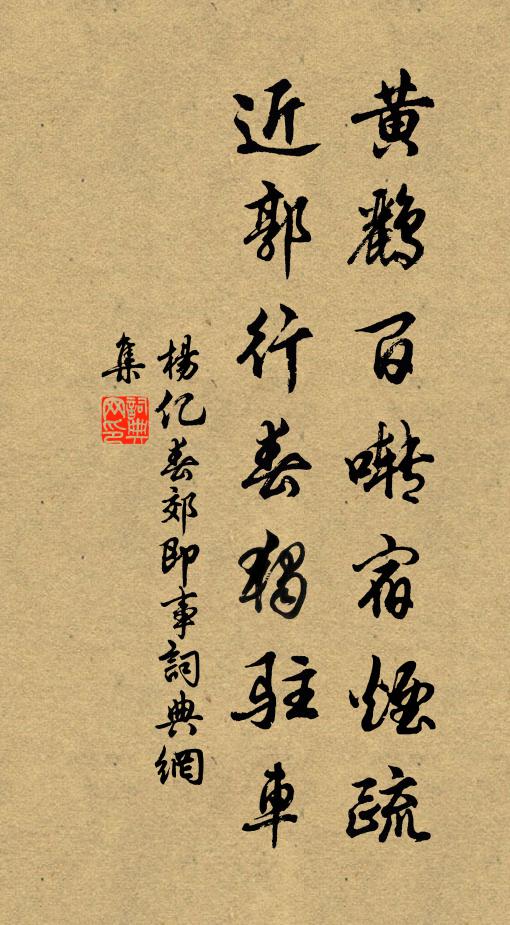 黃鸝百囀宿煙疏
近郭行春獨駐車
楊亿春郊即事詞典網
集
詞典
网印